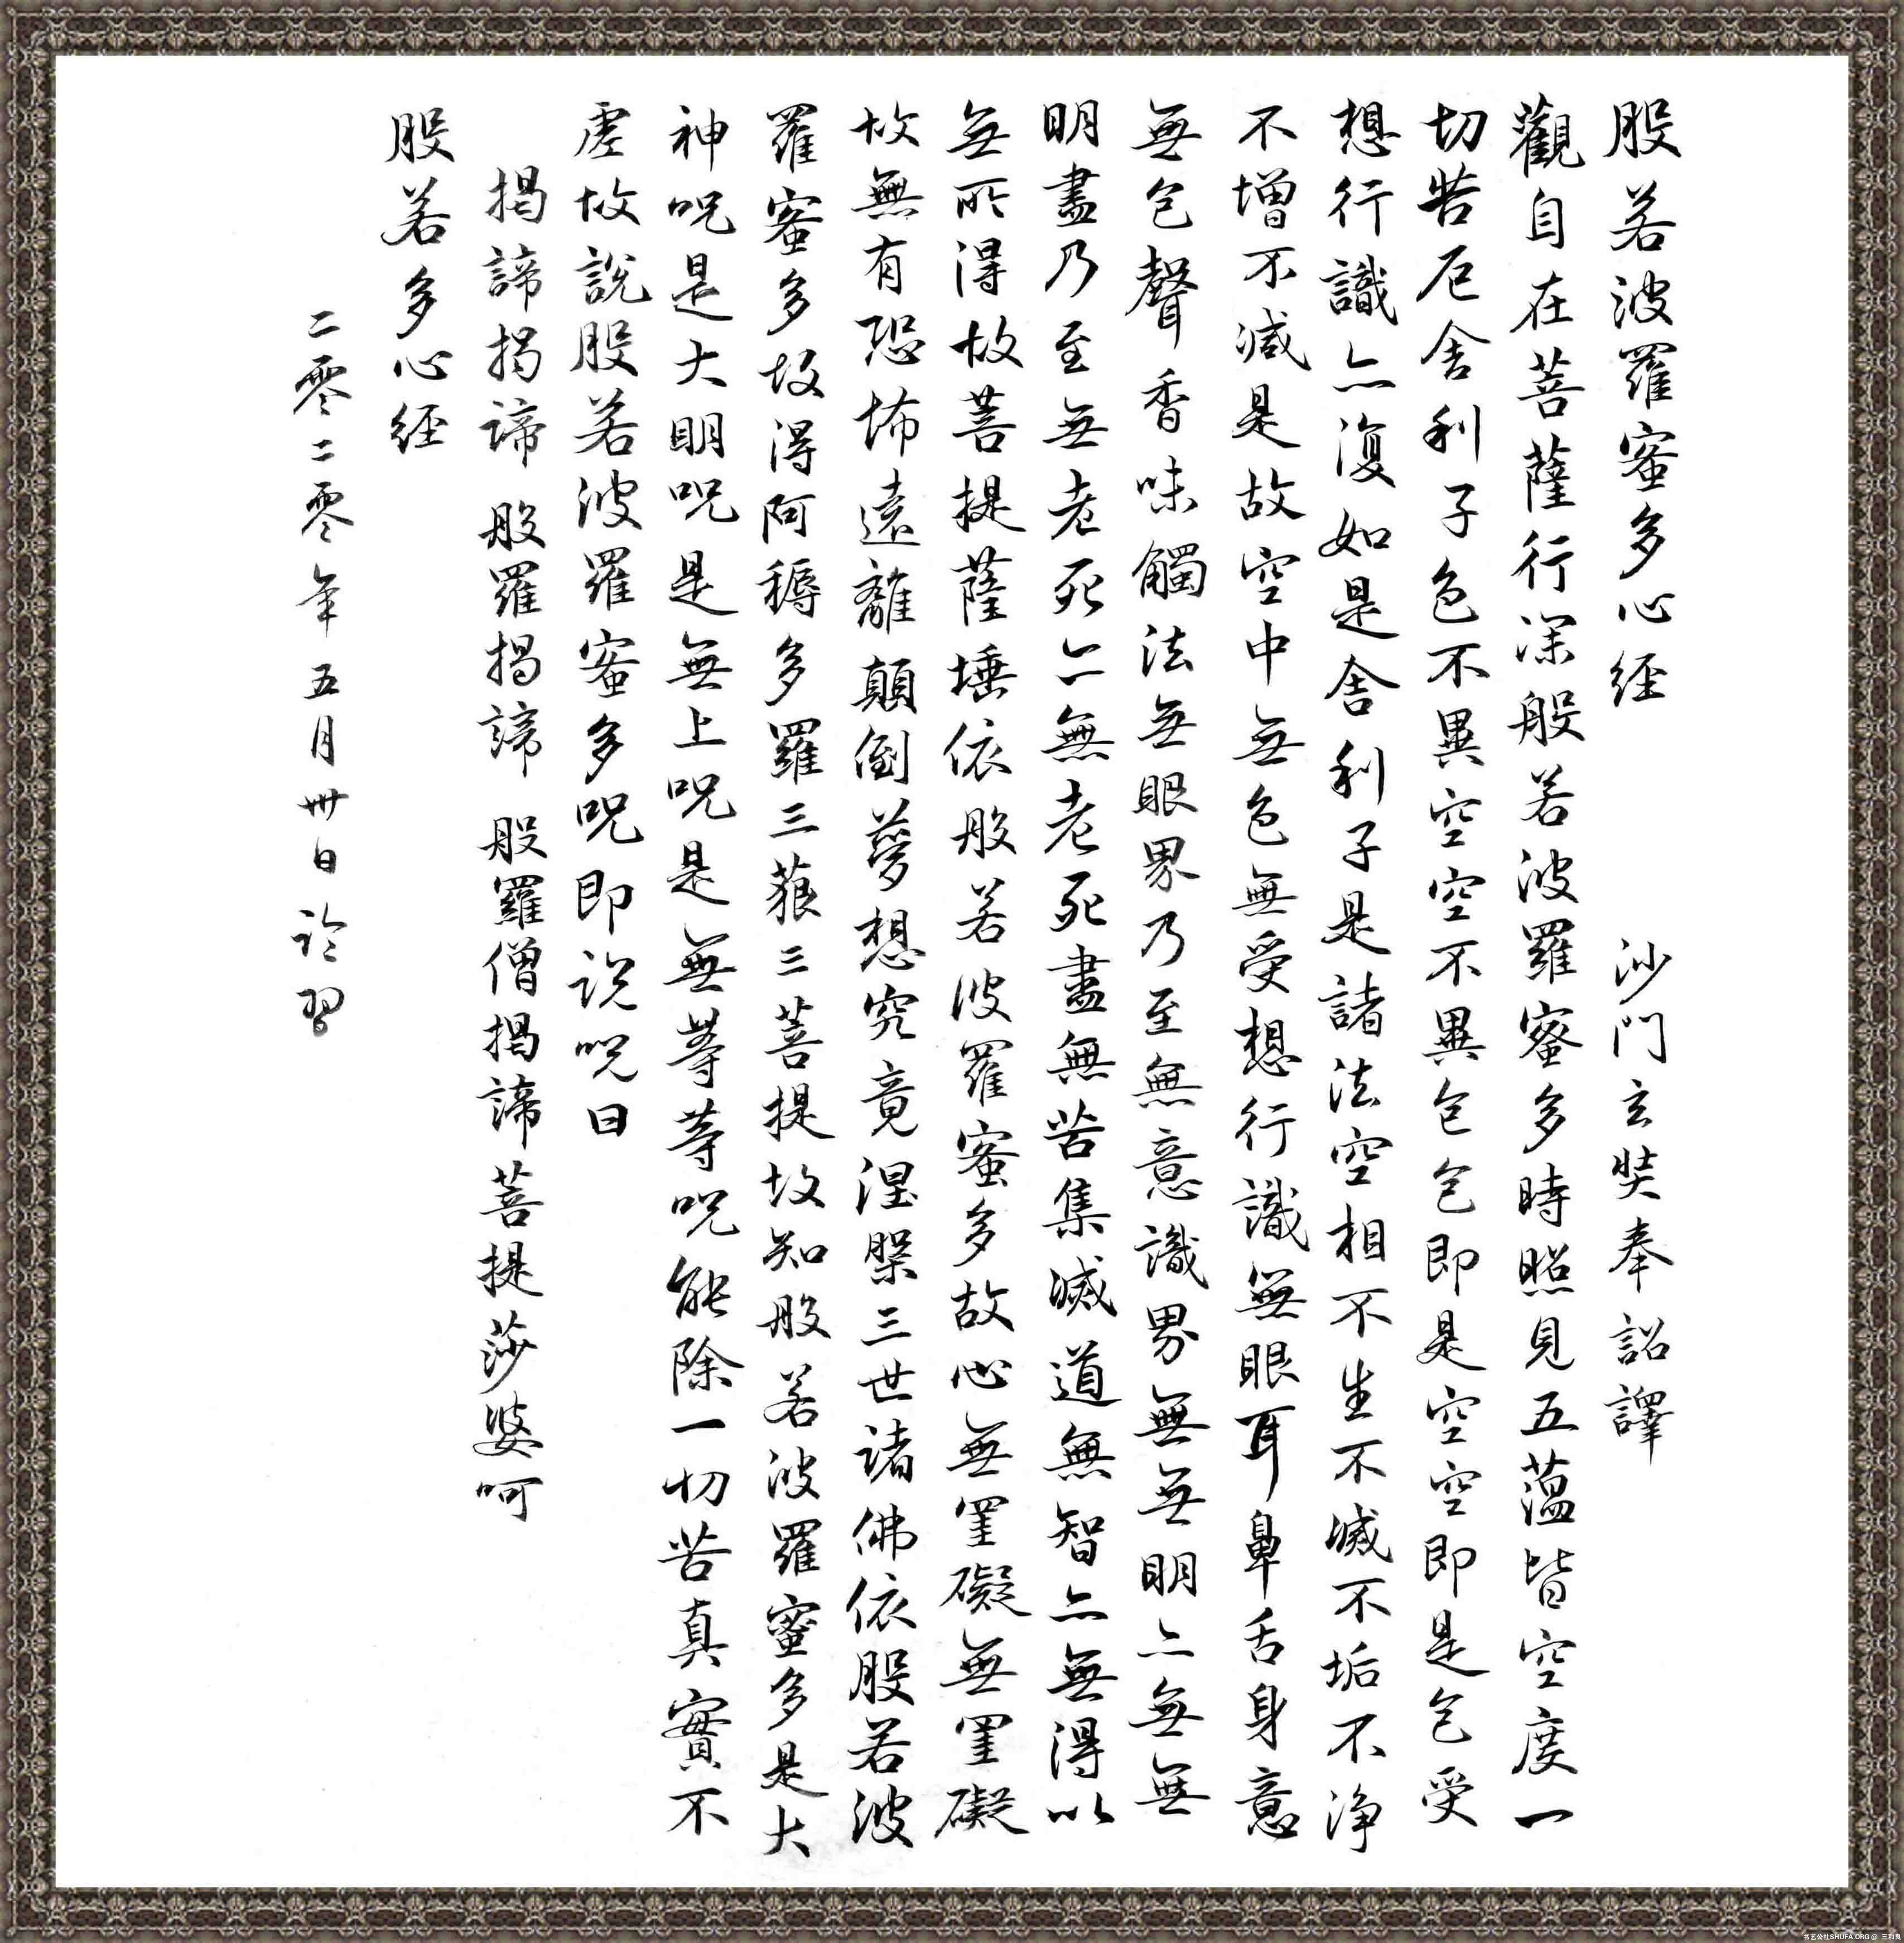 般若波羅蜜多心經 沙門玄奘奉詔譯
觀自在菩薩行深般若波羅蜜多時照見五蘊皆空度一
切苦厄舍利子色不異空空不異色色即是空空即是色受
想行識亦復如是舍利子是諸法空相不生不滅不垢不淨
不增不減是故空中無色無受想行識無眼耳鼻舌身意
無色聲香味觸法無眼界乃至無意識界無無明亦無無
明盡乃至無老死亦無老死盡無苦集滅道無智亦無得以
無所得故菩提薩埵依般若波羅蜜多故心無罣礙無罣礙
故無有恐怖遠離顛倒夢想究竟涅槃三世諸佛依般若波
羅蜜多故得阿耨多羅三藐三菩提故知般若波羅蜜多是大
神呪是大明呪是無上呪是無等等呪能除一切苦真實不
虛故說般若波羅蜜多呪即說呪曰
揭諦揭諦 般羅揭諦 般羅僧揭諦菩提莎婆呵
般若多心經
二零二零年五月卅日 習
书艺公社SHUFA.ORG@